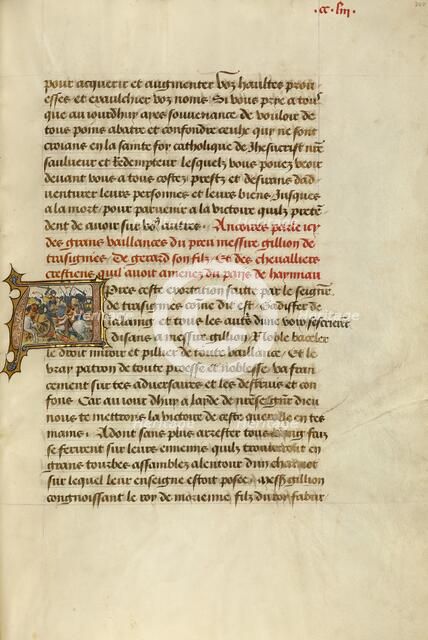 ·cc·liii·
pour acquerir et augmenter voz haultes prou
esses et exaulchier voz noms Si vous prye a tous
que au iourdhuy ayes souvenance de vouloir de
tous poins abatre et confondre ceulx quy ne sont
croians en la sainte foy catholique de Jhesucrist nre
saulueur et Redempteur lesquelz vous pouez veoir
devant vous a tous costez prestz et desirans dad
venturer leurs personnes et leurs biens Jusques
a la mort / pour parvenir a la victoire quilz preten
dent de avoir sur vous autres · Ancores parle icy
des grans vaillances du preu messire gillion de
trasignies · De gerard son filz Et des chevalliers
crestiens quil avoit amenez du pais de haynnau
Apres ceste exortation faitte par le seignr
de trasignies come dit est Gadiffer de
et tous les autres dune voix sescrierent
disans a messire gillion Noble baceler
le droit miroir et pillier de toute vaillance / Et le
vray patron de toute proesse et noblesse va fran
cement sur tes adversaires et les destruis et con
fons Car au iourdhuy a laide de nreseignr dieu
nous te mettrons la victoire de ceste querelle en tes
mains · Adont sans plus arrester tous
se ferirent sur leurs ennemis quilz trouverent en
grans tourbes assemblez alentour dun chariot
sur lequel leur enseigne estoit posee · messire gillion
congnoissant le roy de morienne filz du roy fabur
Heritage
Heritage
Heritage
Heritage